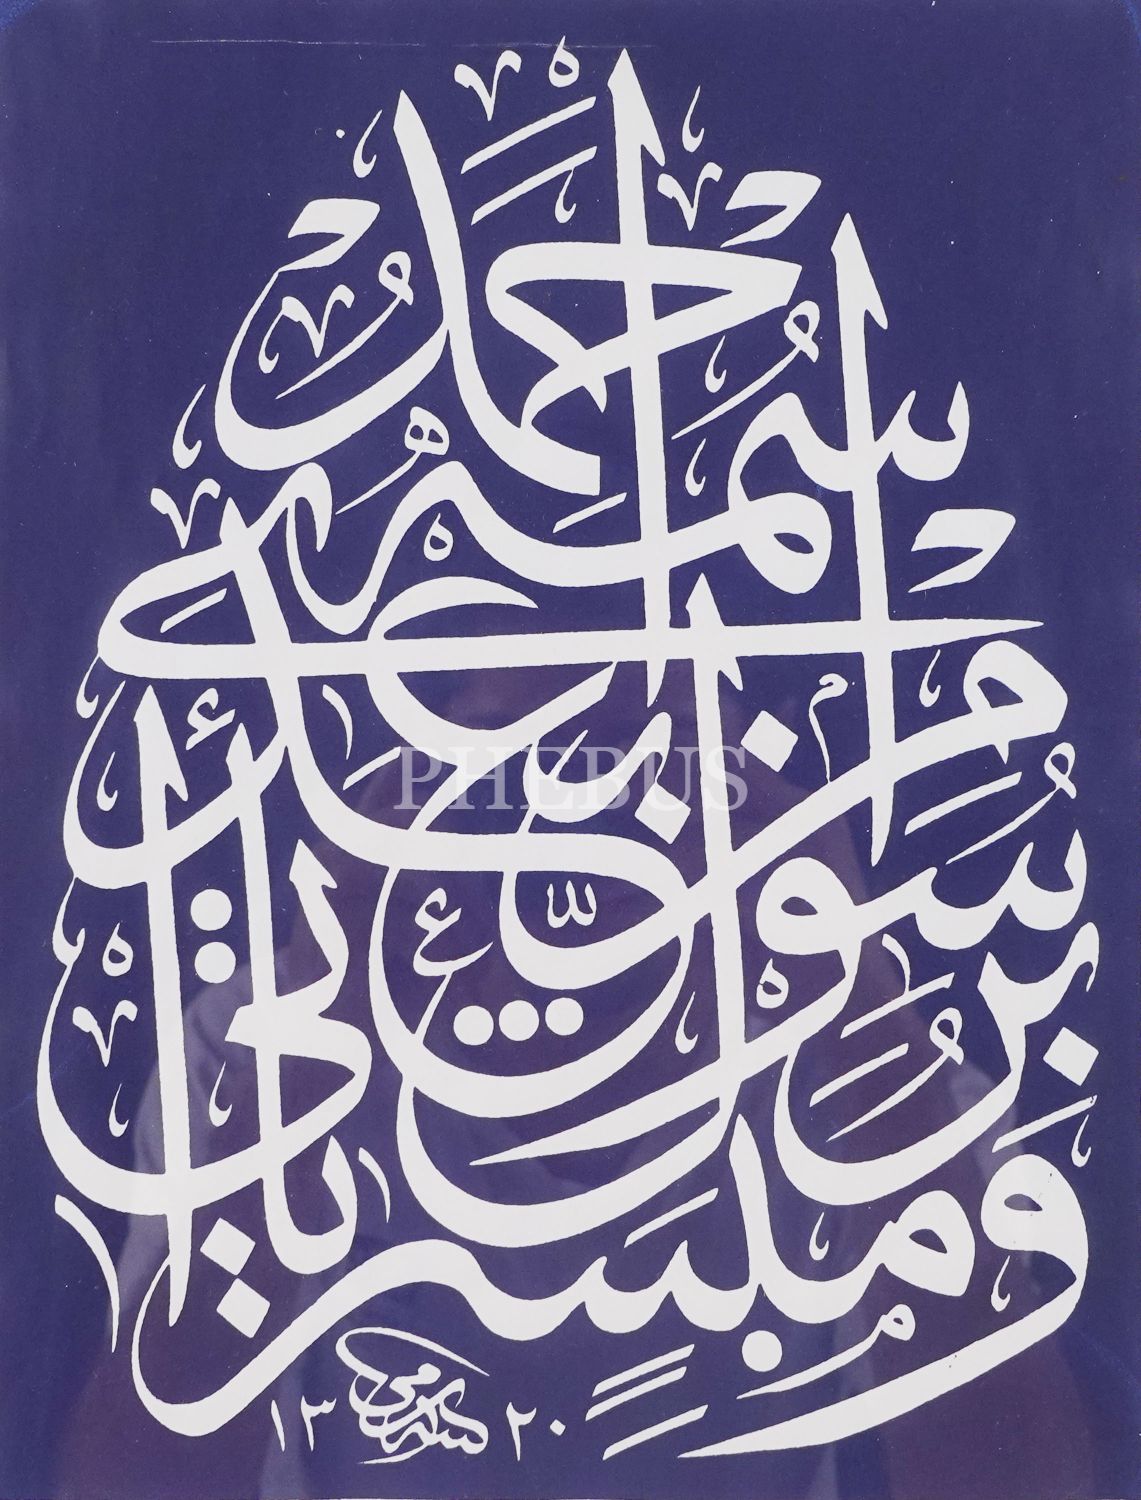 وَمُبَشِّرًا بِرَسُولٍ يَأْتِي مِنْ بَعْدِي اسْمُهُ أَحْمَدُ
١٣٢٠
PHEBUS